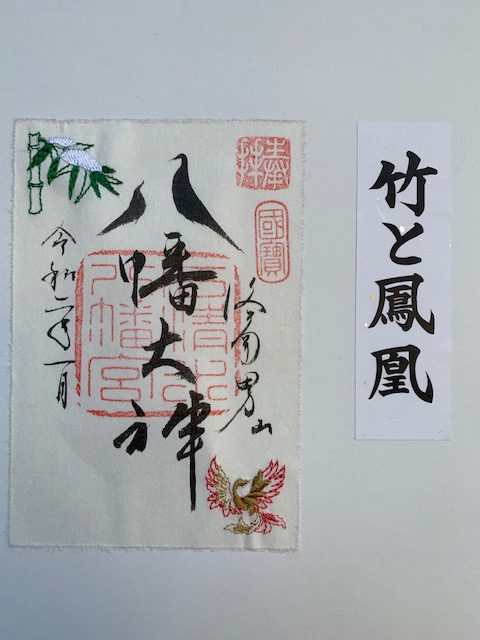 竹と鳳凰
奉拝
國寶
洛南男山
八幡大神
石清水
八幡宮
令和二年一月